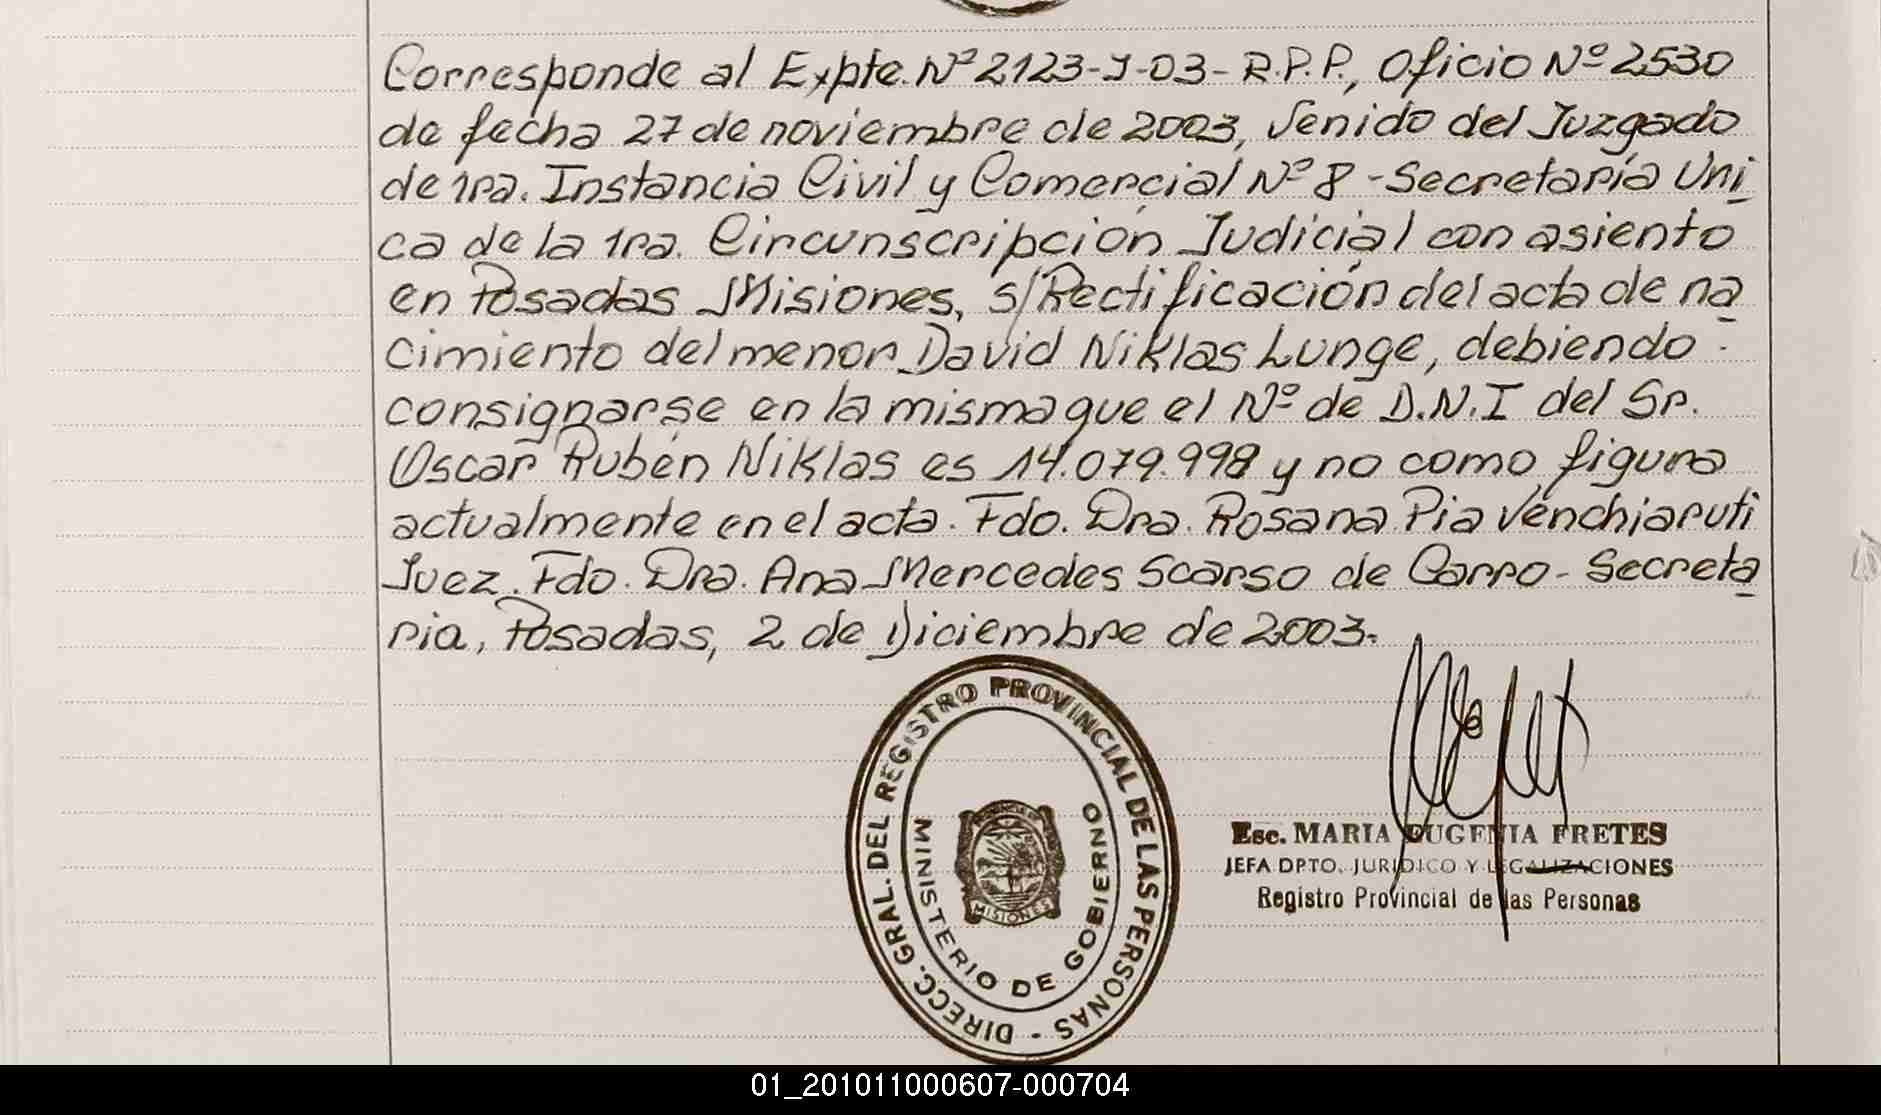 Corresponde al Expte. Nº 2123-J-03- R.P.P., Oficio Nº 2530
de fecha 27 de noviembre de 2003, Venido del Juzgado
de 1ra. Instancia Civil y Comercial Nº 8 - Secretaría Uni
ca de la 1ra. Circunscripción Judicial con asiento
en Posadas Misiones, s/Rectificación del acta de na
cimiento del menor David Niklas Lunge, debiendo -
consignarse en la misma que el Nº de D.N.I del Sr.
Oscar Rubén Niklas es 14.079.998 y no como figura
actualmente en el acta. Fdo. Dra. Rosana Pia Venchiaruti
Juez. Fdo. Dra. Ana Mercedes Scarso de Carro - Secreta
ria, Posadas, 2 de Diciembre de 2003.
DIRECC. GRAL. DEL REGISTRO PROVINCIAL DE LAS PERSONAS -
MINISTERIO DE GOBIERNO
MISIONES
Esc. MARIA EUGENIA FRETES
JEFA DPTO. JURIDICO Y LEGALIZACIONES
Registro Provincial de las Personas
01_201011000607-000704